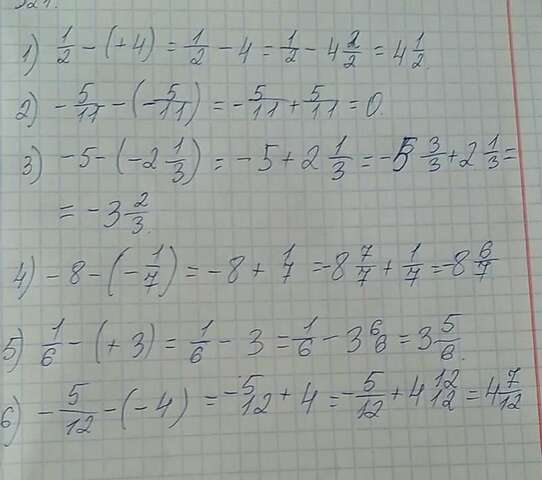 1) 1/2 - (+4) = 1/2 - 4 = 1/2 - 4 2/2 = 4 1/2.
2) - 5/11 - (- 5/11) = - 5/11 + 5/11 = 0.
3) - 5 - (- 2 1/3) = - 5 + 2 1/3 = - 5 3/3 + 2 1/3 =
= - 3 2/3.
4) - 8 - (- 1/7) = - 8 + 1/7 = - 8 7/7 + 1/7 = - 8 6/7
5) 1/6 - (+ 3) = 1/6 - 3 = 1/6 - 3 6/6 = 3 5/6.
6) - 5/12 - (- 4) = - 5/12 + 4 = - 5/12 + 4 12/12 = 4 7/12